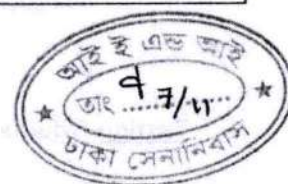 আই ই এন্ড আই
তাং ..... ৭/১১ .....
ঢাকা সেনানিবাস